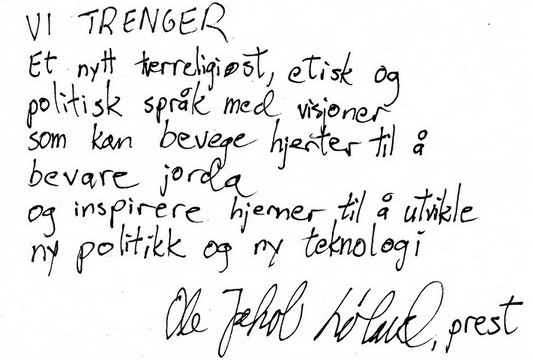 VI TRENGER
Et nytt tverreligiøst, etisk og
politisk språk med visjoner
som kan bevege hjerter til å
bevare jorda
og inspirere hjerner til å utvikle
ny politikk og ny teknologi
Ole Jakob Løland, prest